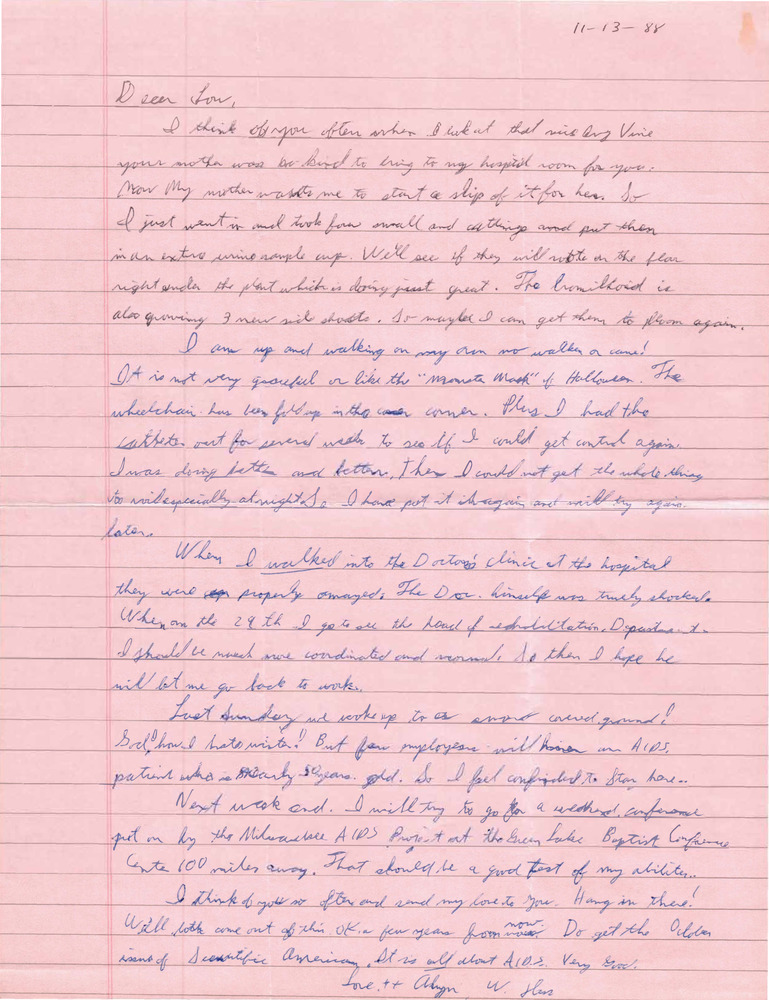 11-13-88
Dear Lou,
I think of you often when I look at that nice Vine
your mother was so kind to bring to my hospital room for you.
Now My mother wants me to start a slip of it for her. So
I just went in and took four small end cuttings and put them
in an extra urine sample cup. We'll see if they will on the
right under the plant which is doing just great. The is
also growing 3 new side shoots. So maybe I can get them to bloom again.
I am up and walking on my own no walker or cane!
It is not very graceful or like the "Monster Mash" of Halloween. The
wheelchair has been fold up in the corner. Plus I had the
out for several weeks to see if I could get control again.
I was doing better and better, Then I could not get the whole thing
too especially at night So I have put it in again and will try again
later.
When I walked into the Doctor's Clinic at the hospital
they were properly amazed. The Doc. himself was truely shocked.
When on the 29th I go to see the head of Department
I should be much more coordinated and normal. So then I hope he
will let me go back to work.
Last Sunday we woke up to a covered ground!
God, how I hate winter! But few employers will an AIDS
patient who is nearly 50 years old. So I feel to Stay here..
Next week end. I will try to go for a weekend conference
put on by the Milwaukee AIDS Project at the Green Lake Baptist Conference
Center 100 miles away. That should be a good test of my abilities..
I think of you so often and send my love to you. Hang in there!
We'll both come out of this OK a few years from now. Do get the October
issue of Scientific American. It is all about AIDS. Very Good.
Love, ++ W.